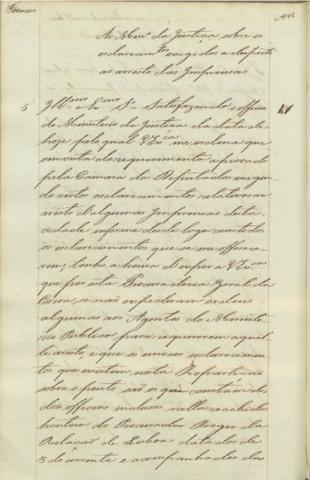 Fevereiro
Ao Min.º da Justiça sobre os
esclarecim.tos exigidos a respeito
ao arresto das Imprensas
5 Ill.mo e Ex.mo Sr. Satisfazendo o officio
do Ministerio da Justiça da data de
hoje pelo qual V Ex.cia me ordena que
em vista do requerimento approvado
pela Camara dos Deputados exigin
do certos esclarecimentos relativos ao
aresto d'algumas Imprensas desta
cidade informe desde logo com todos
os esclarecimentos que se me offerece
rem; tenho a honra d'expôr a V Ex.cia
que por esta Procuradoria Geral da
Coroa se não expediram ordens
algumas aos Agentes do Ministe
rio Publico para requererem aquel
le aresto, e que os unicos esclarecimen
tos que existem nesta Repartição
sobre o ponto são os que constam dos
dois officios inclusos nella recebidos
hontem do Procurador Regio da
Relação de Lisboa datados de
3 do corrente e acompanhados da